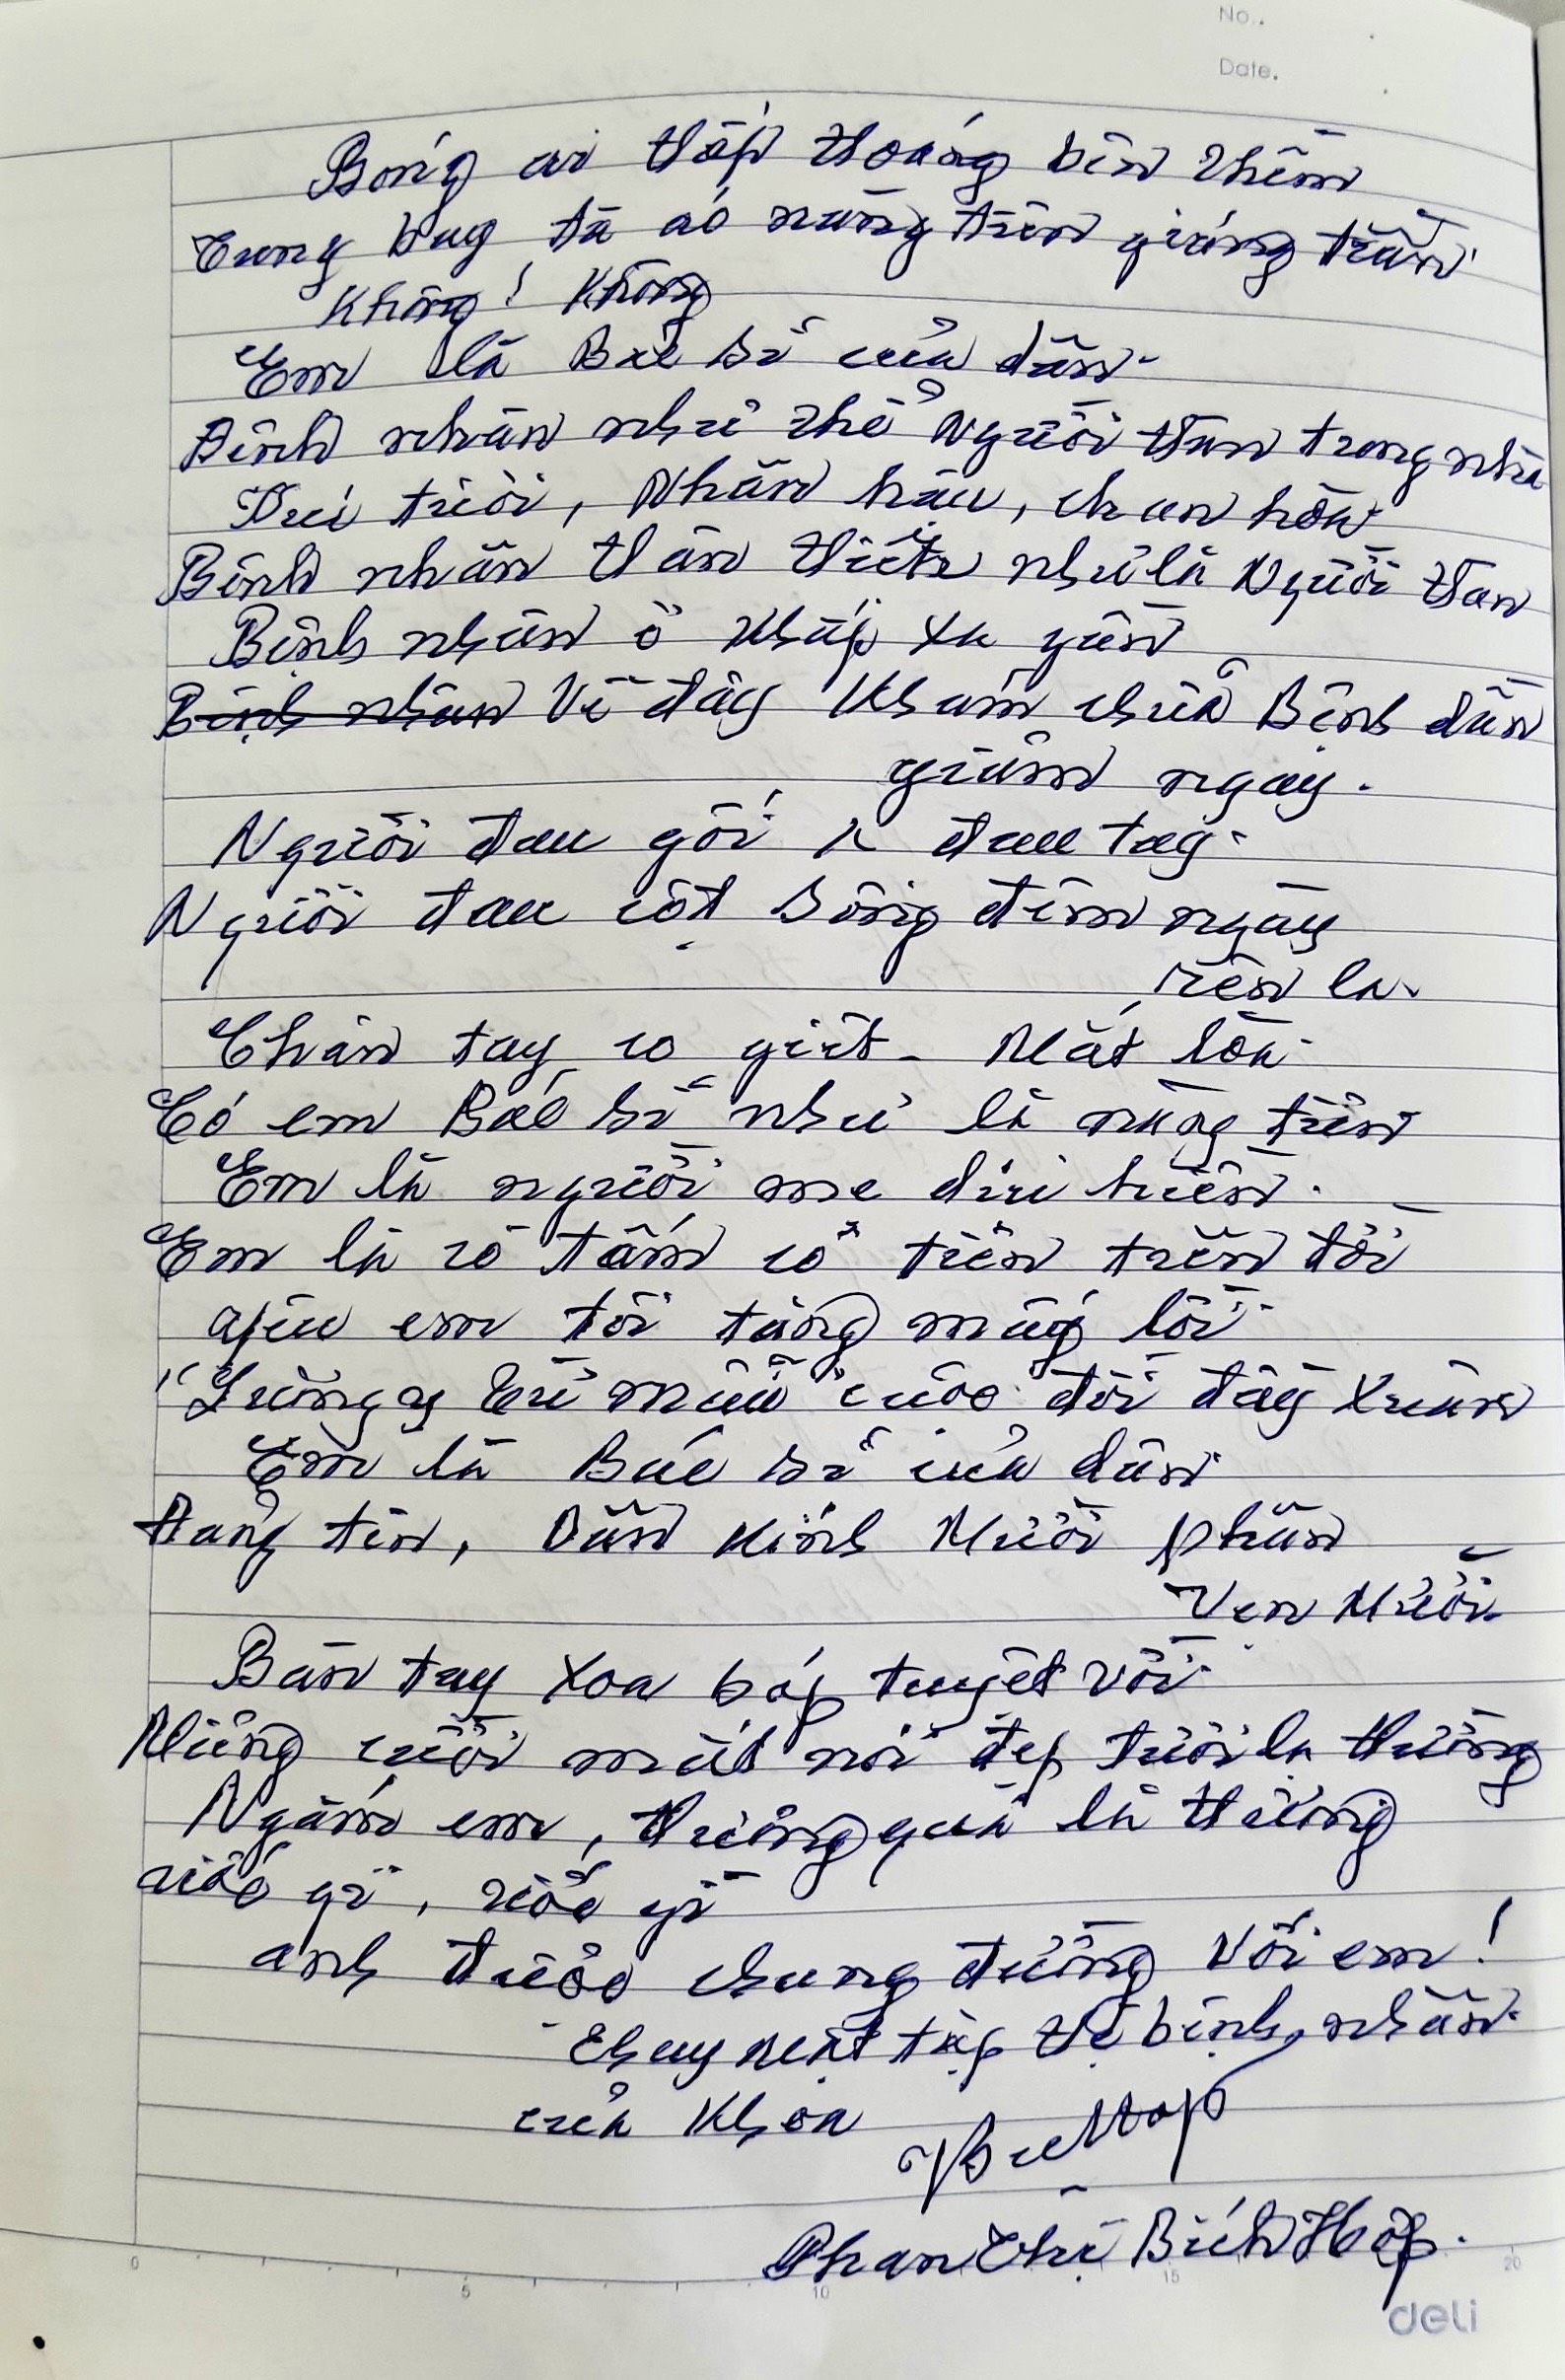 No.
Date.
Bóng ai thấp thoáng bên thềm
Tung bay tà áo nàng tiên giáng trần
Không! Không
Em là Bác sĩ của dân
Bệnh nhân như thể Người thân trong nhà
Vui tươi, Nhân hậu, chan hòa
Bệnh nhân thân thiết như là Người thân
Bệnh nhân ở khắp xa gần
Bệnh nhân Về đây Khám chữa Bệnh dần
giảm ngay.
Người đau gối đau tay
Người đau cột sống đêm ngày
rên la
Chân tay co giật - Mắt lòa
Có em Bác sĩ như là nàng tiên
Em là người mẹ dịu hiền.
Em là cô Tấm cô tiên trên đời
yêu em tôi tặng mấy lời
"Lương y từ mẫu" cuộc đời đầy xuân
Em là Bác sĩ của dân
Đảng tin, Dân kính Mười phần
Vẹn Mười
Bàn tay xoa bóp tuyệt vời
Miệng cười mát nói đẹp tươi lạ thường
Ngắm em, thương quá là thương
ước gì, ước gì
anh được chung đường với em!
Thay mặt tập thể bệnh nhân
của Khoa
Phan Thị Bích Hợp.
0 5 10 15 20
deli